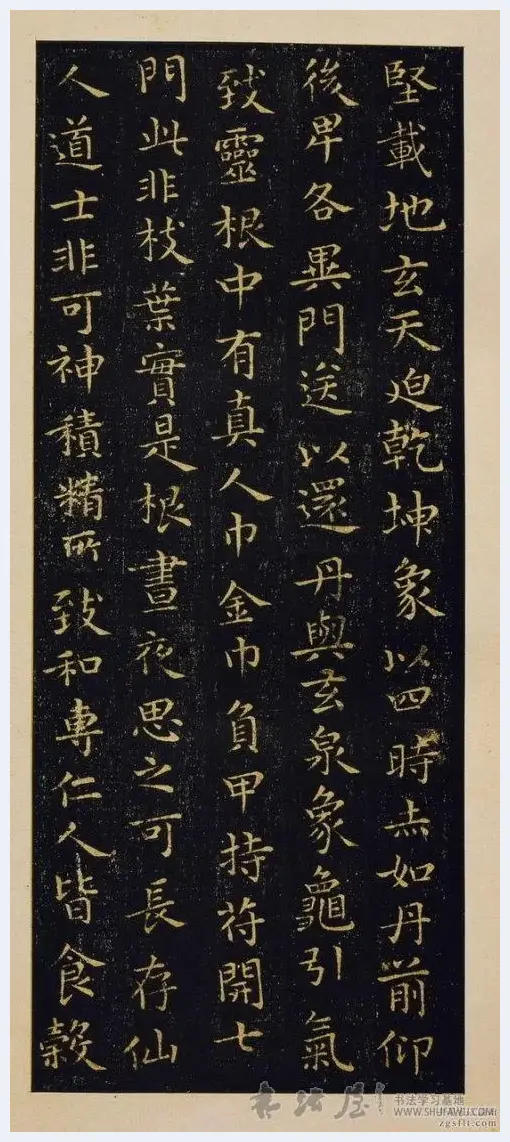 堅載地玄天迫乾坤象以四時赤如丹前仰
後卑各異門送以還丹與玄泉象龜引氣
致靈根中有真人巾金巾負甲持符開七
門此非枝葉實是根晝夜思之可長存仙
人道士非可神積精所致和專仁人皆食穀
书法屋
书法学习基地
WWW.SHUFAWU.COM
zgsflt.com